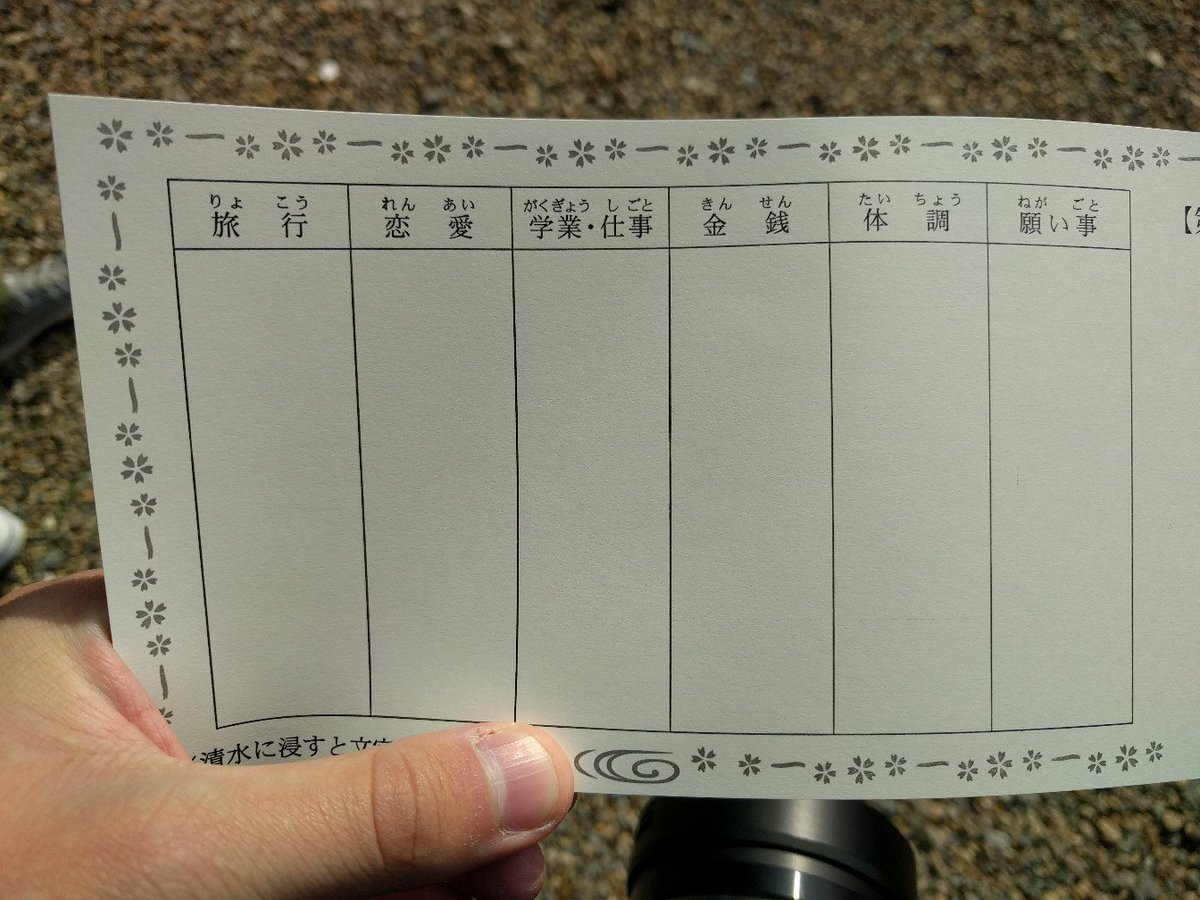 旅行
りょこう
恋愛
れんあい
学業・仕事
がくぎょう しごと
金銭
きんせん
体調
たいちょう
願い事
ねがごと
清水に浸すと文